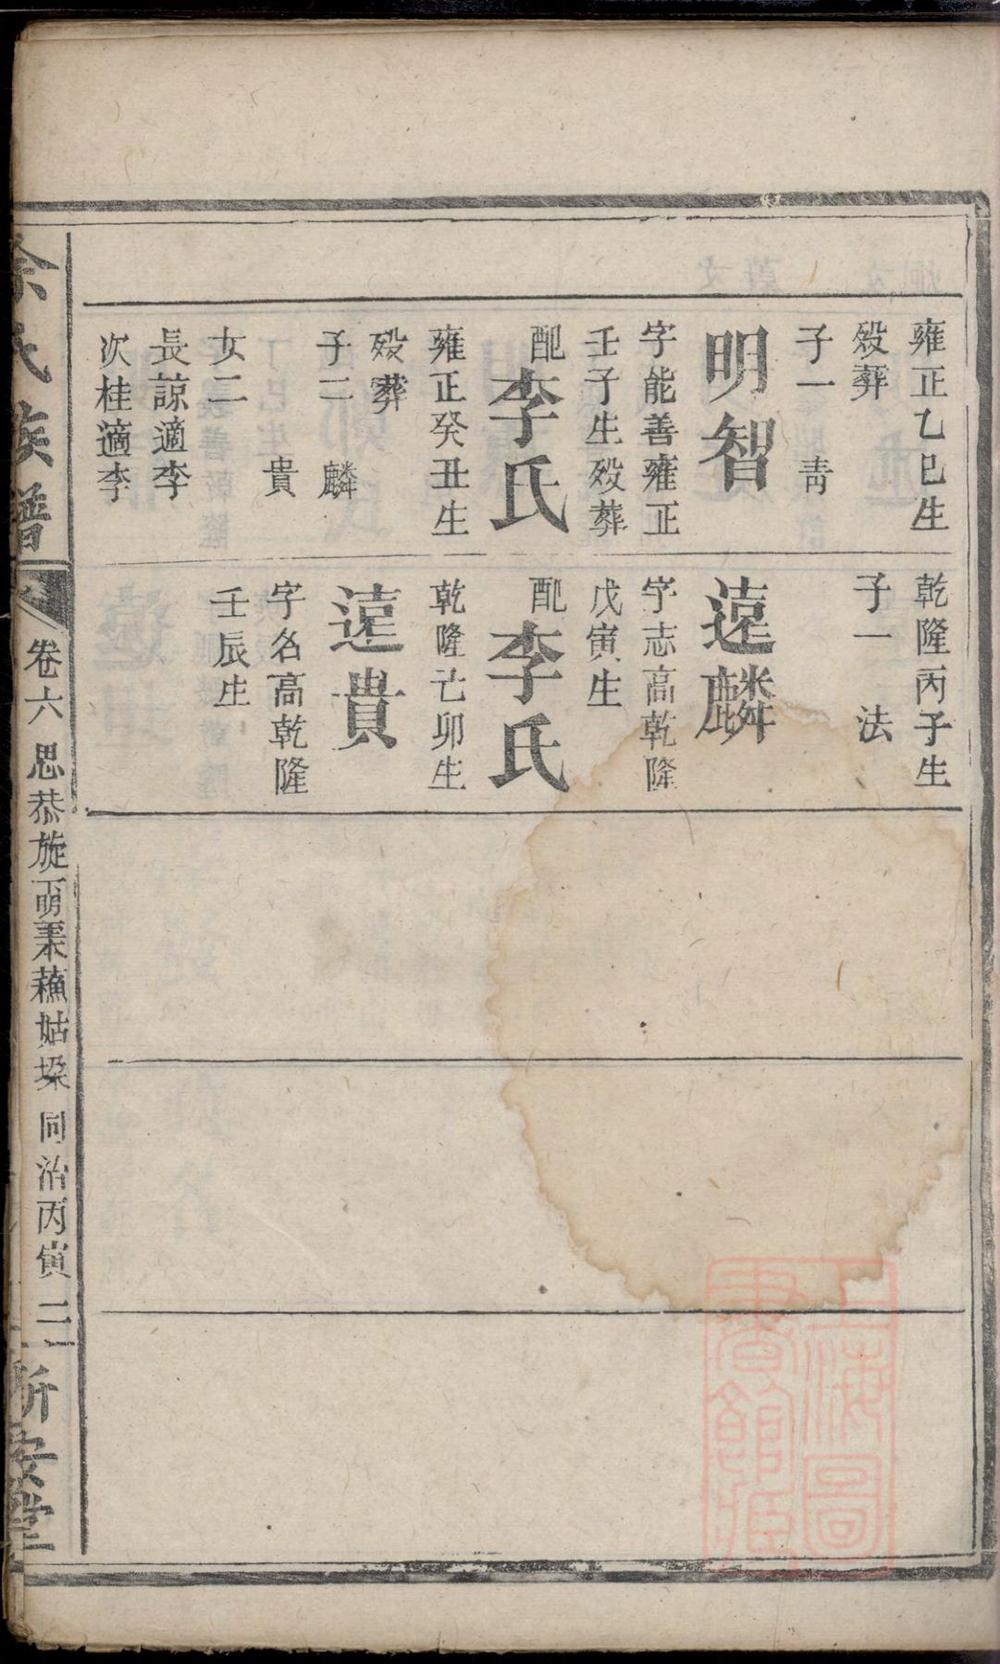 雍正乙巳生
殁葬
子一　靑
明智
字能善雍正
壬子生殁葬
配李氏
雍正癸丑生
殁葬
子二　麟
貴
女二
長諒適李
次桂適李
乾隆丙子生
子一　法
遠麟
字志高乾隆
戊寅生
配李氏
乾隆乙卯生
遠貴
字名高乾隆
壬辰生
余氏族譜
卷六
思恭旋
明秉蘓姑垜
同治丙寅
二
新安堂
上海圖
書館藏